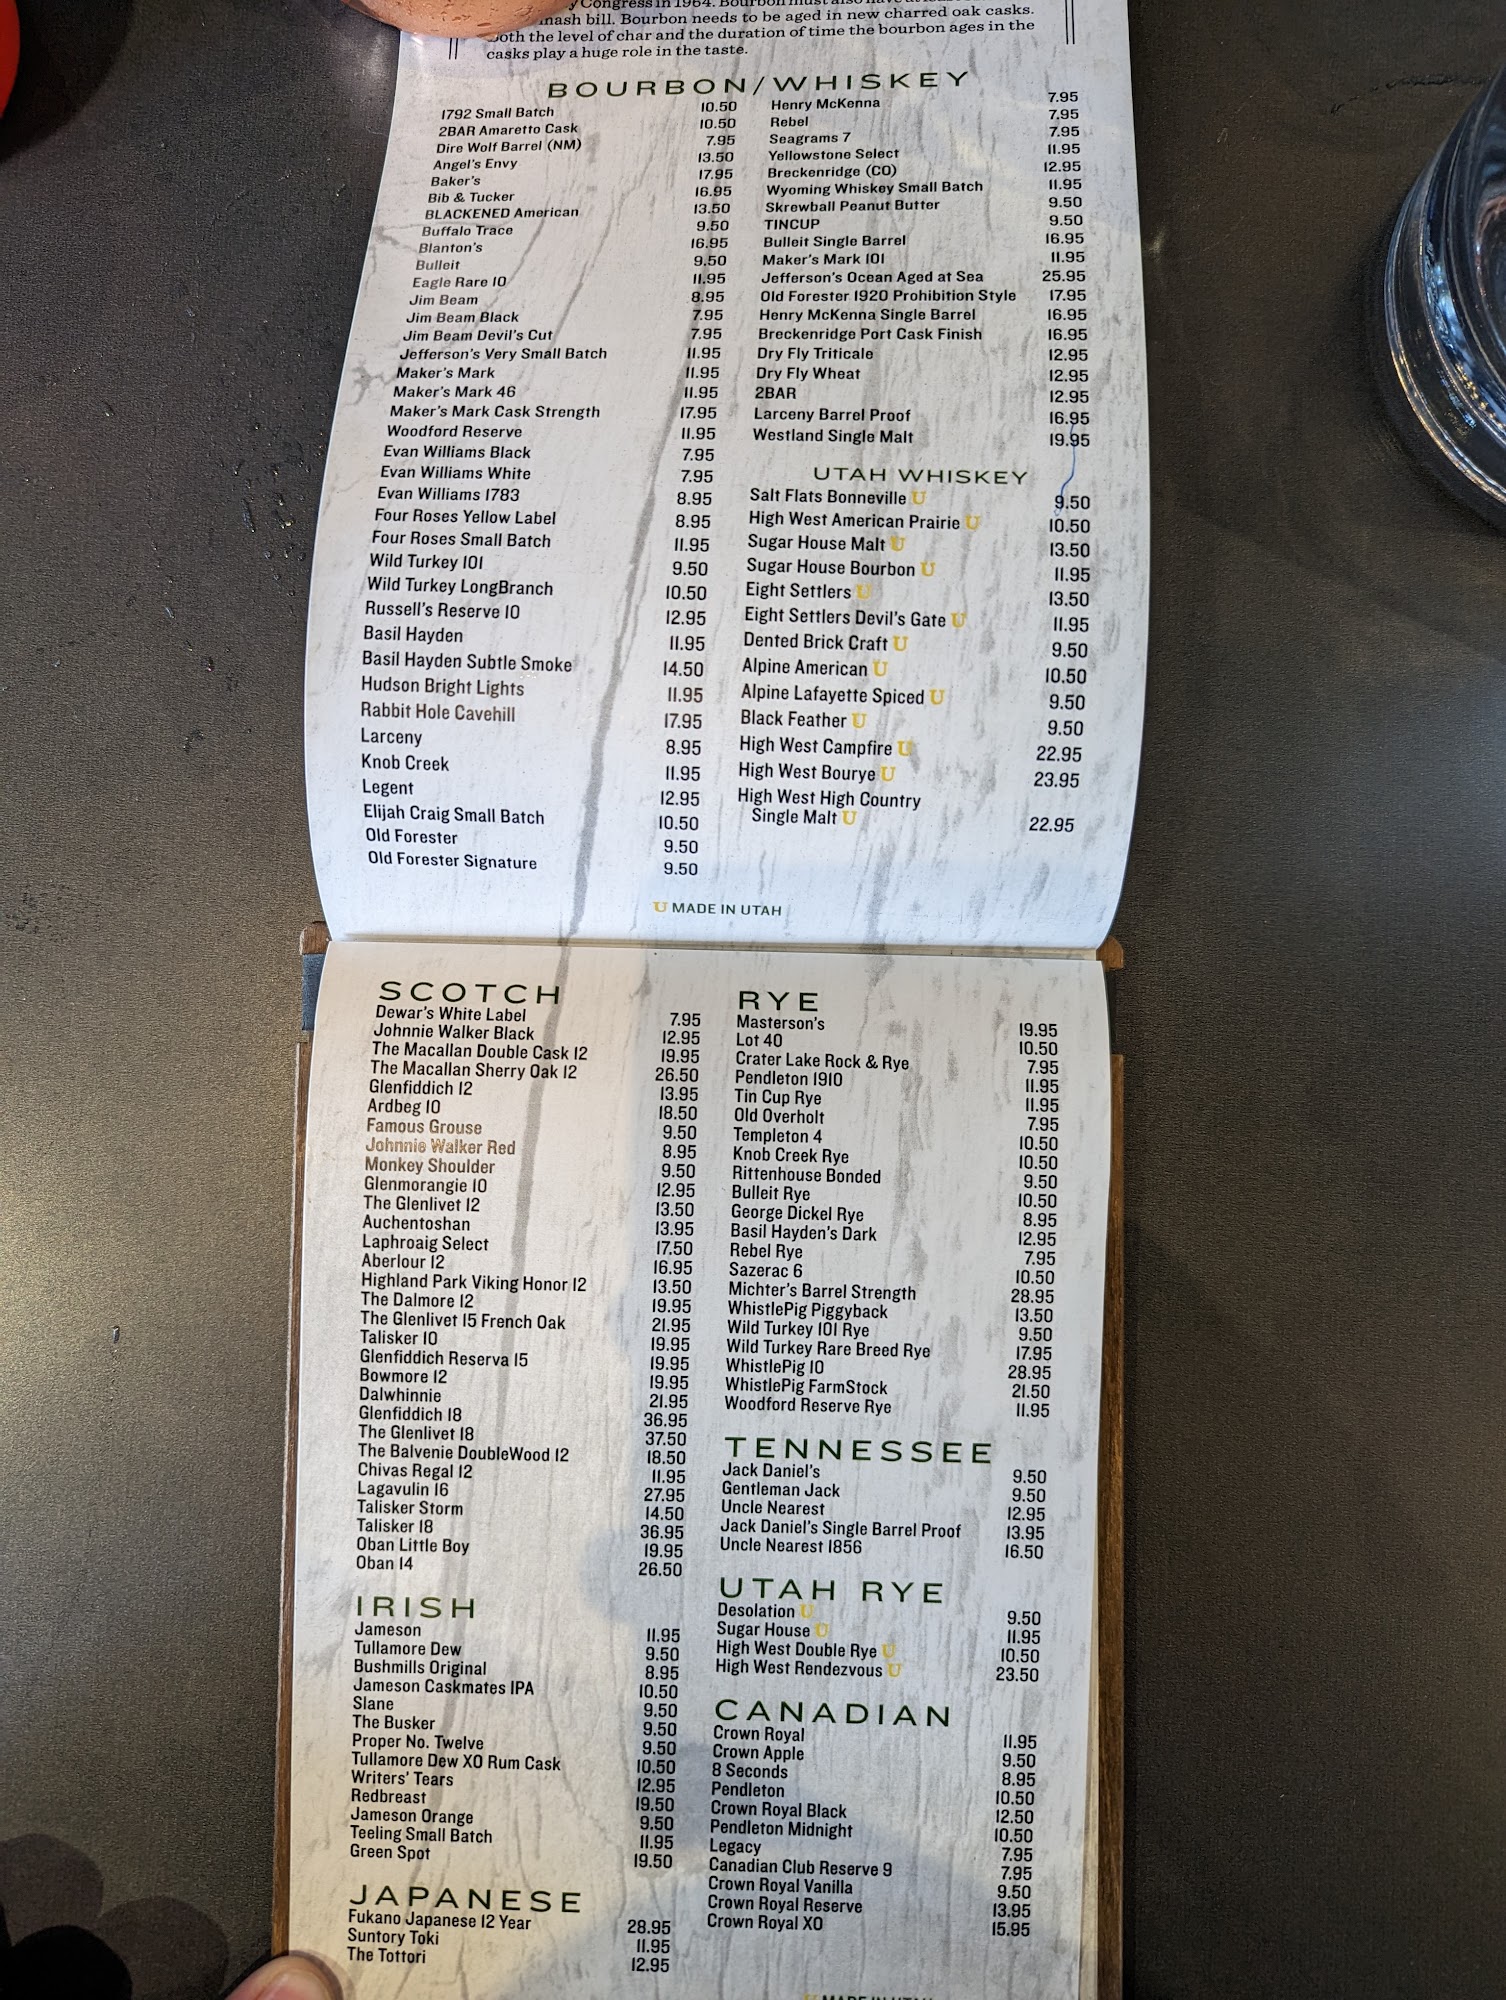 Congress in 1964. Bourbon must also have
mash bill. Bourbon needs to be aged in new charred oak casks.
Both the level of char and the duration of time the bourbon ages in the
casks play a huge role in the taste.
BOURBON/WHISKEY
1792 Small Batch 10.50
2BAR Amaretto Cask 10.50
Dire Wolf Barrel (NM) 7.95
Angel's Envy 13.50
Baker's 17.95
Bib & Tucker 16.95
BLACKENED American 13.50
Buffalo Trace 9.50
Blanton's 16.95
Bulleit 9.50
Eagle Rare 10 11.95
Jim Beam 8.95
Jim Beam Black 7.95
Jim Beam Devil's Cut 7.95
Jefferson's Very Small Batch 11.95
Maker's Mark 11.95
Maker's Mark 46 11.95
Maker's Mark Cask Strength 17.95
Woodford Reserve 11.95
Evan Williams Black 7.95
Evan Williams White 7.95
Evan Williams 1783 8.95
Four Roses Yellow Label 8.95
Four Roses Small Batch 11.95
Wild Turkey 101 9.50
Wild Turkey LongBranch 10.50
Russell's Reserve 10 12.95
Basil Hayden 11.95
Basil Hayden Subtle Smoke 14.50
Hudson Bright Lights 11.95
Rabbit Hole Cavehill 17.95
Larceny 8.95
Knob Creek 11.95
Legent 12.95
Elijah Craig Small Batch 10.50
Old Forester 9.50
Old Forester Signature 9.50
Henry McKenna 7.95
Rebel 7.95
Seagrams 7 7.95
Yellowstone Select 11.95
Breckenridge (CO) 12.95
Wyoming Whiskey Small Batch 11.95
Skrewball Peanut Butter 9.50
TINCUP 9.50
Bulleit Single Barrel 16.95
Maker's Mark 101 11.95
Jefferson's Ocean Aged at Sea 25.95
Old Forester 1920 Prohibition Style 17.95
Henry McKenna Single Barrel 16.95
Breckenridge Port Cask Finish 16.95
Dry Fly Triticale 12.95
Dry Fly Wheat 12.95
2BAR 12.95
Larceny Barrel Proof 16.95
Westland Single Malt 19.95
UTAH WHISKEY
Salt Flats Bonneville U 9.50
High West American Prairie U 10.50
Sugar House Malt U 13.50
Sugar House Bourbon U 11.95
Eight Settlers U 13.50
Eight Settlers Devil's Gate U 11.95
Dented Brick Craft U 9.50
Alpine American U 10.50
Alpine Lafayette Spiced U 9.50
Black Feather U 9.50
High West Campfire U 22.95
High West Bourye U 23.95
High West High Country
Single Malt U 22.95
U MADE IN UTAH
SCOTCH
Dewar's White Label 7.95
Johnnie Walker Black 12.95
The Macallan Double Cask 12 19.95
The Macallan Sherry Oak 12 26.50
Glenfiddich 12 13.95
Ardbeg 10 18.50
Famous Grouse 9.50
Johnnie Walker Red 8.95
Monkey Shoulder 9.50
Glenmorangie 10 12.95
The Glenlivet 12 13.50
Auchentoshan 13.95
Laphroaig Select 17.50
Aberlour 12 16.95
Highland Park Viking Honor 12 13.50
The Dalmore 12 19.95
The Glenlivet 15 French Oak 21.95
Talisker 10 19.95
Glenfiddich Reserva 15 19.95
Bowmore 12 19.95
Dalwhinnie 21.95
Glenfiddich 18 36.95
The Glenlivet 18 37.50
The Balvenie DoubleWood 12 18.50
Chivas Regal 12 11.95
Lagavulin 16 27.95
Talisker Storm 14.50
Talisker 18 36.95
Oban Little Boy 19.95
Oban 14 26.50
IRISH
Jameson 11.95
Tullamore Dew 9.50
Bushmills Original 8.95
Jameson Caskmates IPA 10.50
Slane 9.50
The Busker 9.50
Proper No. Twelve 9.50
Tullamore Dew XO Rum Cask 10.50
Writers' Tears 12.95
Redbreast 19.50
Jameson Orange 9.50
Teeling Small Batch 11.95
Green Spot 19.50
JAPANESE
Fukano Japanese 12 Year 28.95
Suntory Toki 11.95
The Tottori 12.95
RYE
Masterson's 19.95
Lot 40 10.50
Crater Lake Rock & Rye 7.95
Pendleton 1910 11.95
Tin Cup Rye 11.95
Old Overholt 7.95
Templeton 4 10.50
Knob Creek Rye 10.50
Rittenhouse Bonded 9.50
Bulleit Rye 10.50
George Dickel Rye 8.95
Basil Hayden's Dark 12.95
Rebel Rye 7.95
Sazerac 6 10.50
Michter's Barrel Strength 28.95
WhistlePig Piggyback 13.50
Wild Turkey 101 Rye 9.50
Wild Turkey Rare Breed Rye 17.95
WhistlePig 10 28.95
WhistlePig FarmStock 21.50
Woodford Reserve Rye 11.95
TENNESSEE
Jack Daniel's 9.50
Gentleman Jack 9.50
Uncle Nearest 12.95
Jack Daniel's Single Barrel Proof 13.95
Uncle Nearest 1856 16.50
UTAH RYE
Desolation U 9.50
Sugar House U 11.95
High West Double Rye U 10.50
High West Rendezvous U 23.50
CANADIAN
Crown Royal 11.95
Crown Apple 9.50
8 Seconds 8.95
Pendleton 10.50
Crown Royal Black 12.50
Pendleton Midnight 10.50
Legacy 7.95
Canadian Club Reserve 9 7.95
Crown Royal Vanilla 9.50
Crown Royal Reserve 13.95
Crown Royal XO 15.95